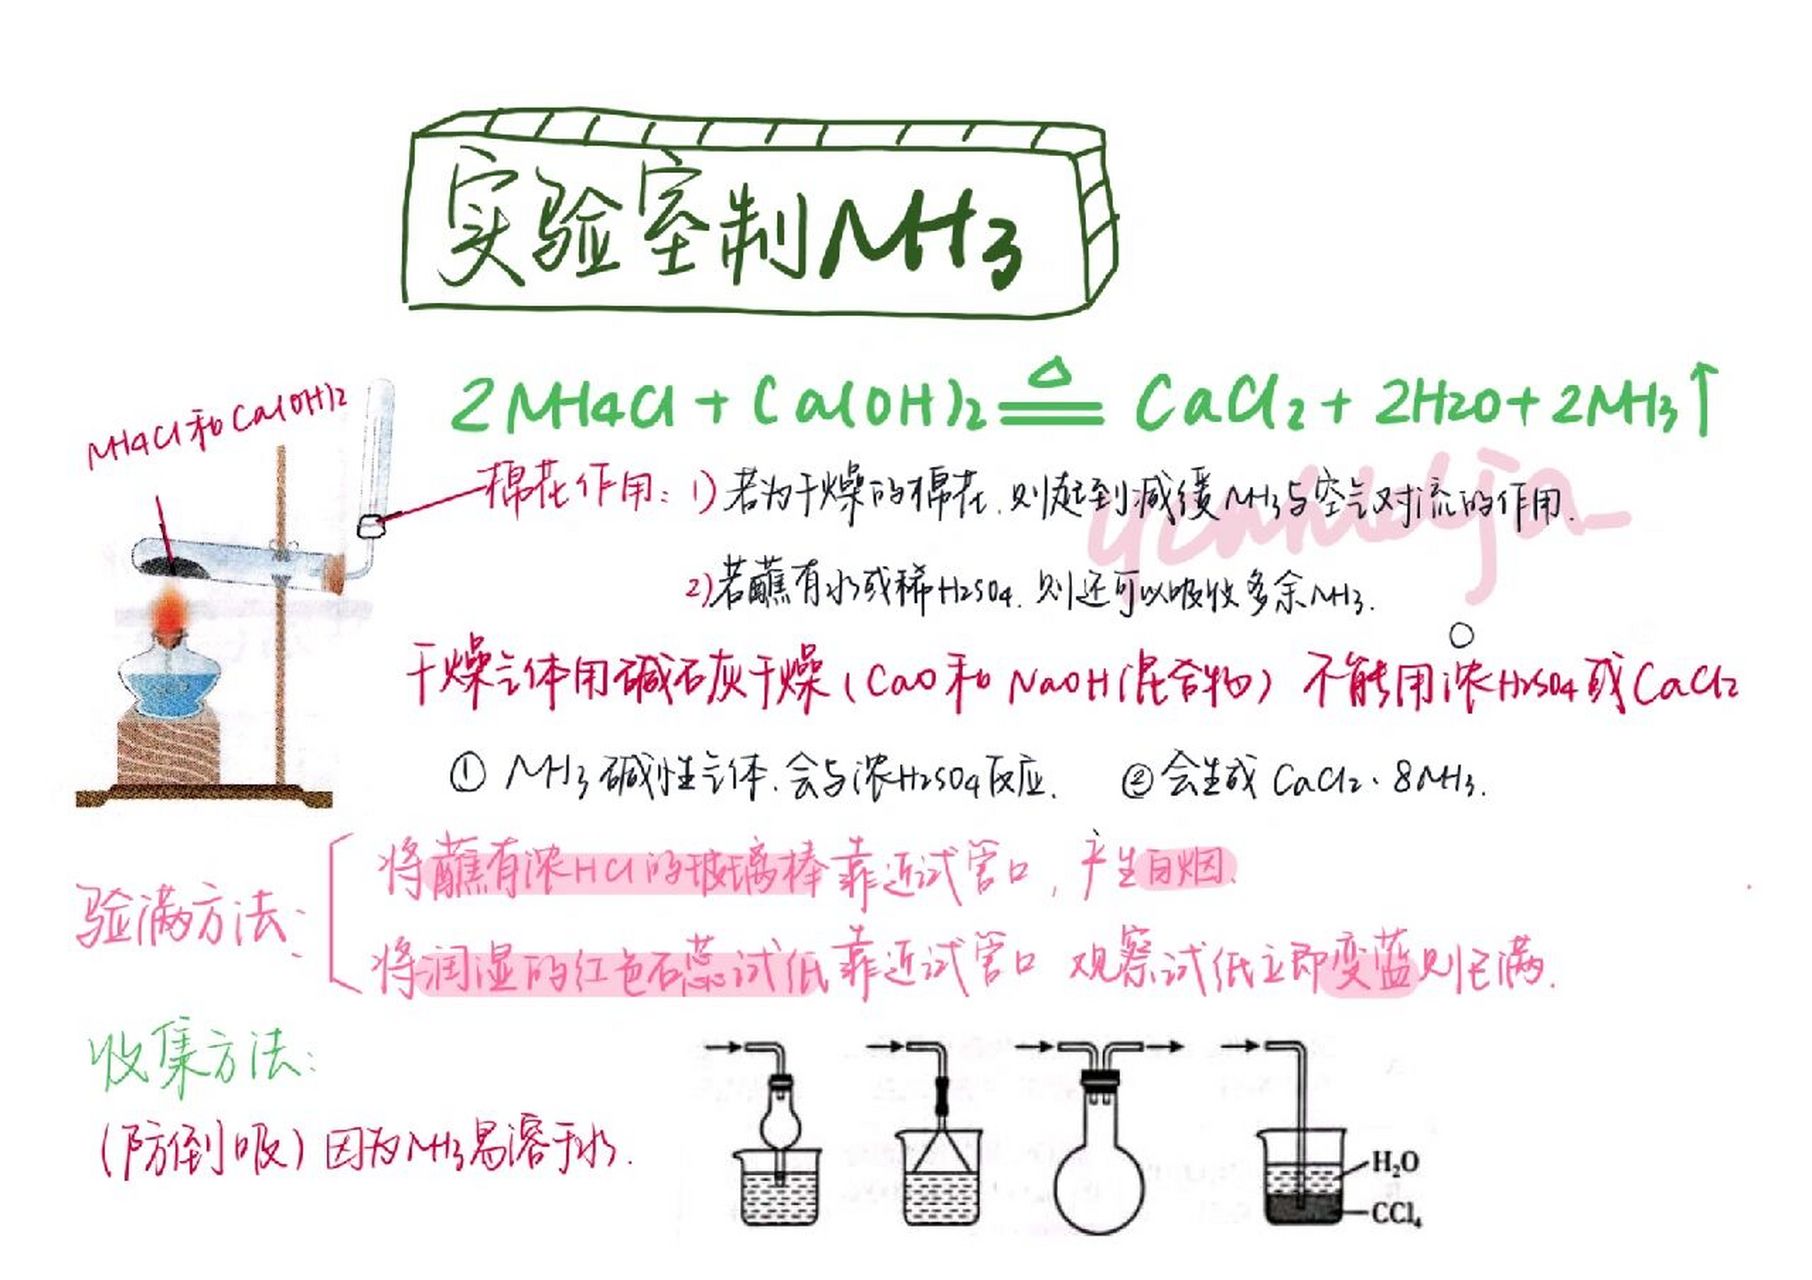 实验室制NH3
NH4Cl和Ca(OH)2
2NH4Cl + Ca(OH)2 ≜ CaCl2 + 2H2O + 2NH3↑
棉花作用: 1) 若为干燥的棉花.则起到减缓NH3与空气对流的作用.
2) 若蘸有水或稀H2SO4.则还可以吸收多余NH3.
干燥气体用碱石灰干燥(CaO和NaOH混合物) 不能用浓H2SO4或CaCl2
① NH3碱性气体.会与浓H2SO4反应. ②会生成CaCl2·8NH3.
验满方法:
将蘸有浓HCl的玻璃棒靠近试管口, 产生白烟.
将润湿的红色石蕊试纸靠近试管口 观察试纸立即变蓝则已满.
收集方法:
(防倒吸) 因为NH3易溶于水.
H2O
CCl4